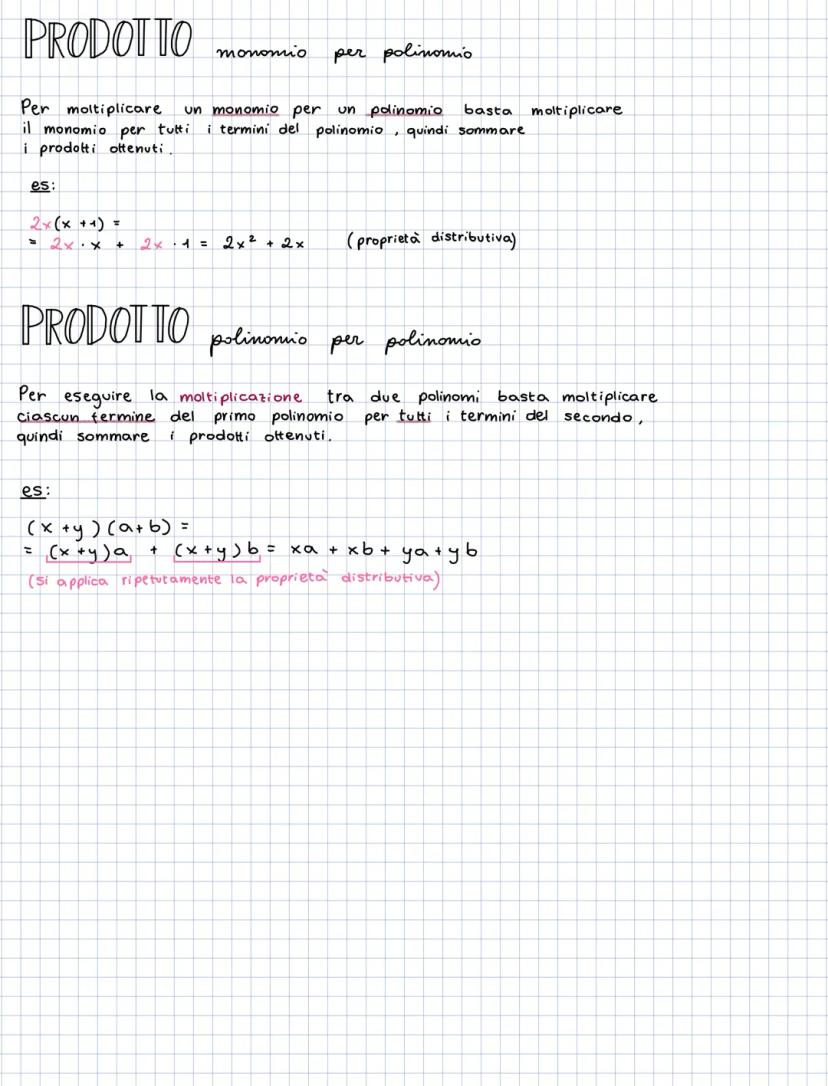 PRODOTTO monomio per polinomio
Per moltiplicare un monomio per un polinomio basta moltiplicare
il monomio per tutti i termini del polinomio, quindi sommare
i prodotti ottenuti.
es:
2x(x +1) =
= 2x · x + 2x · 1 = 2x² + 2x (proprietà distributiva)
PRODOTTO polinomio per polinomio
Per eseguire la moltiplicazione tra due polinomi basta moltiplicare
ciascun termine del primo polinomio per tutti i termini del secondo,
quindi sommare i prodotti ottenuti.
es:
(x +y)(a+b) =
= (x +y)a + (x+y)b = xa + xb + ya + yb
(Si applica ripetutamente la proprietà distributiva)